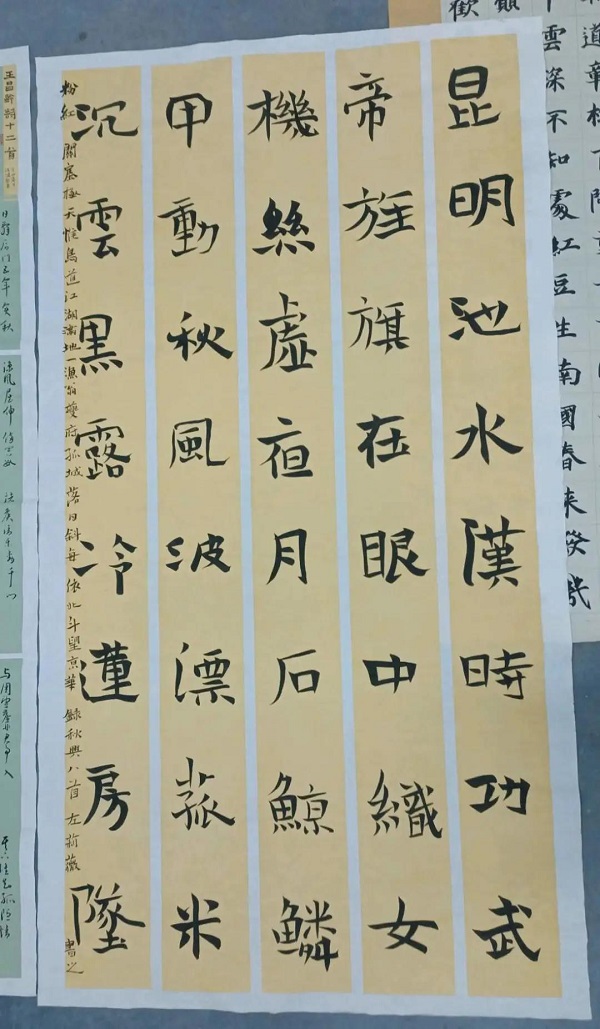 雲深不知處紅豆生南國春來發幾
昆明池水漢時功武
帝旌旗在眼中織女
機絲虛夜月石鯨鱗
甲動秋風波漂菰米
沉雲黑露冷蓮房墜
粉紅 關塞極天惟鳥道江湖滿地一漁翁夔府孤城落日斜每依北斗望京華 錄秋興八首 左薇 書之
王昌齡詩十二首